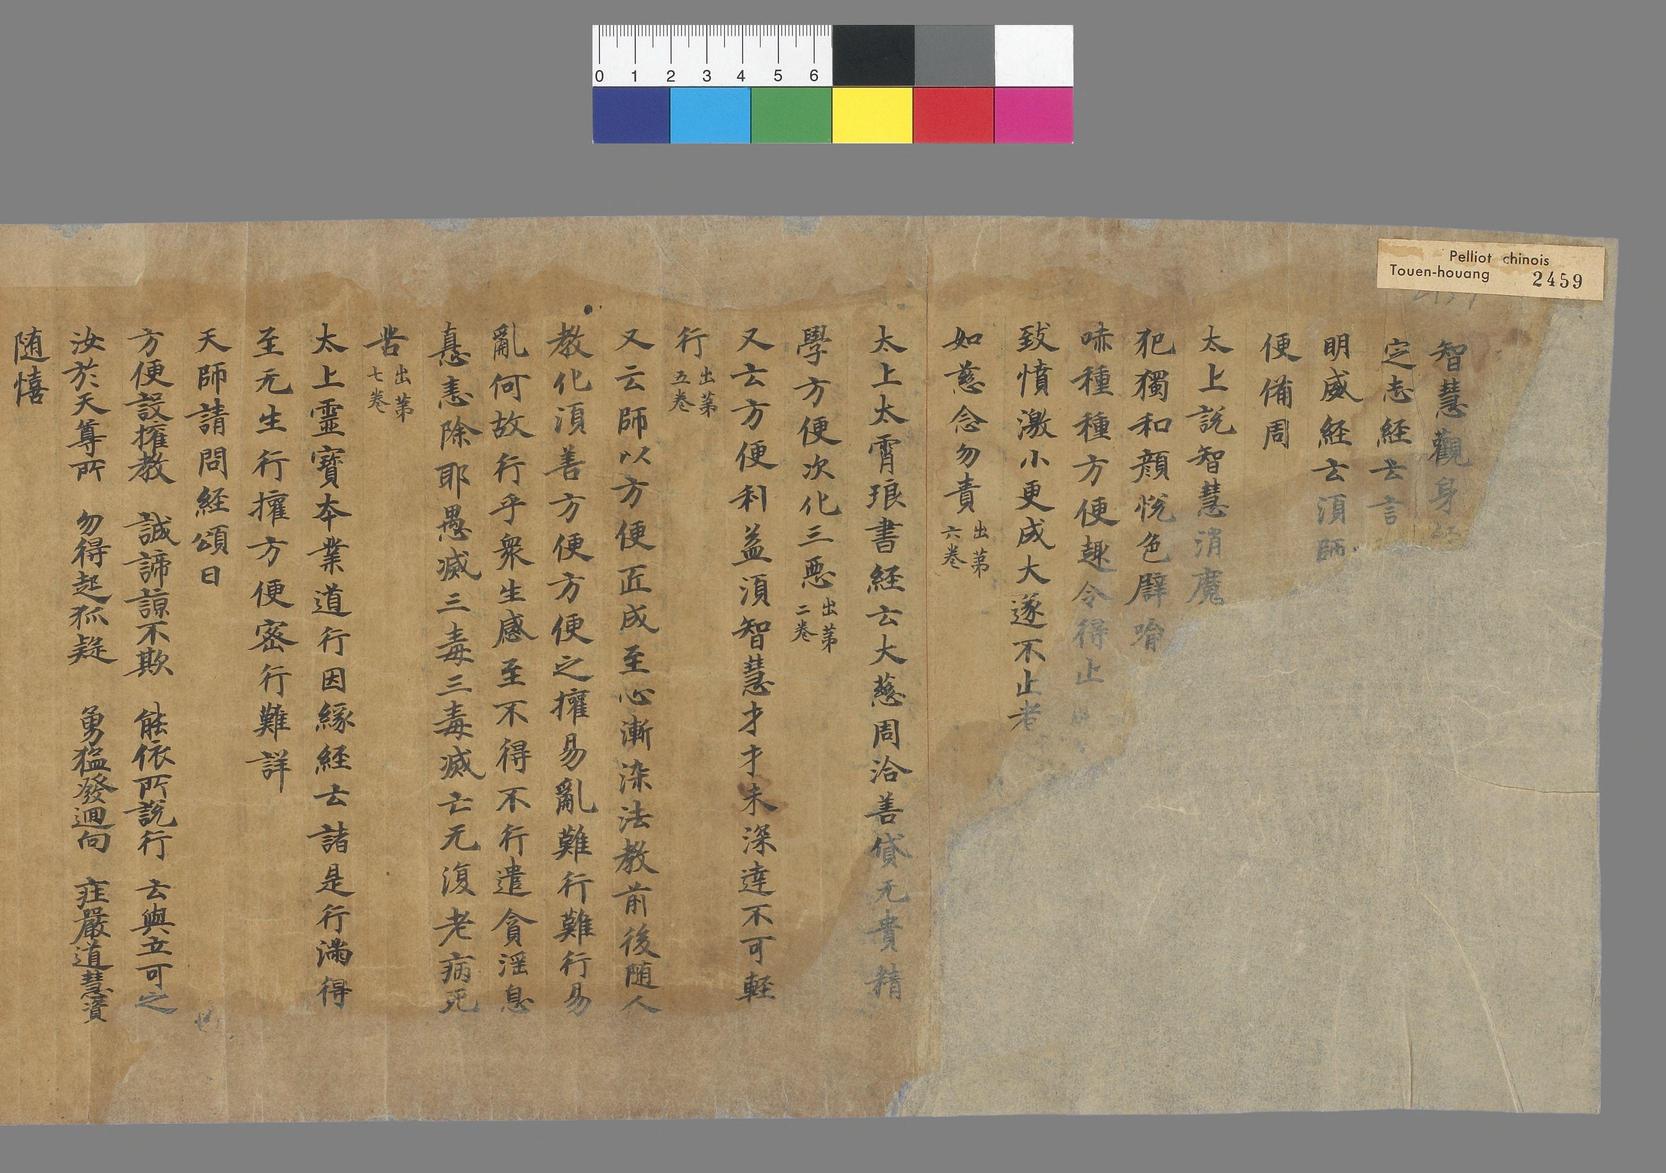 Pelliot chinois
Touen-houang 2459
0 1 2 3 4 5 6
智慧觀身經
定志經云言
明威經云湏師
便備周
太上說智慧消魔
犯獨和顔恱色譬喻
味種種方便趣令得止
致憤激小更成大遂不止者
如慈念勿責出第六卷
太上太霄琅書經云大慈周洽善貸无貴精
學方便次化三惡出第二卷
又云方便利益湏智慧才才未深達不可輕
行出第五卷
又云師以方便匠成至心漸染法教前後随人
教化湏善方便方便之㩲易亂難行難行易
亂何故行乎衆生感至不得不行遣貪滛息
恚除耶愚滅三毒三毒滅亡无復老病死
苦出第七卷
太上靈寳夲業道行因緣經云諸是行滿得
至无生行㩲方便宻行難詳
天師請問經頌曰
方便設㩲教 誠諦諒不欺 能依所說行 去與立可之
汝於天尊所 勿得起狐疑 勇猛發迴向 荘嚴道慧資
随憘